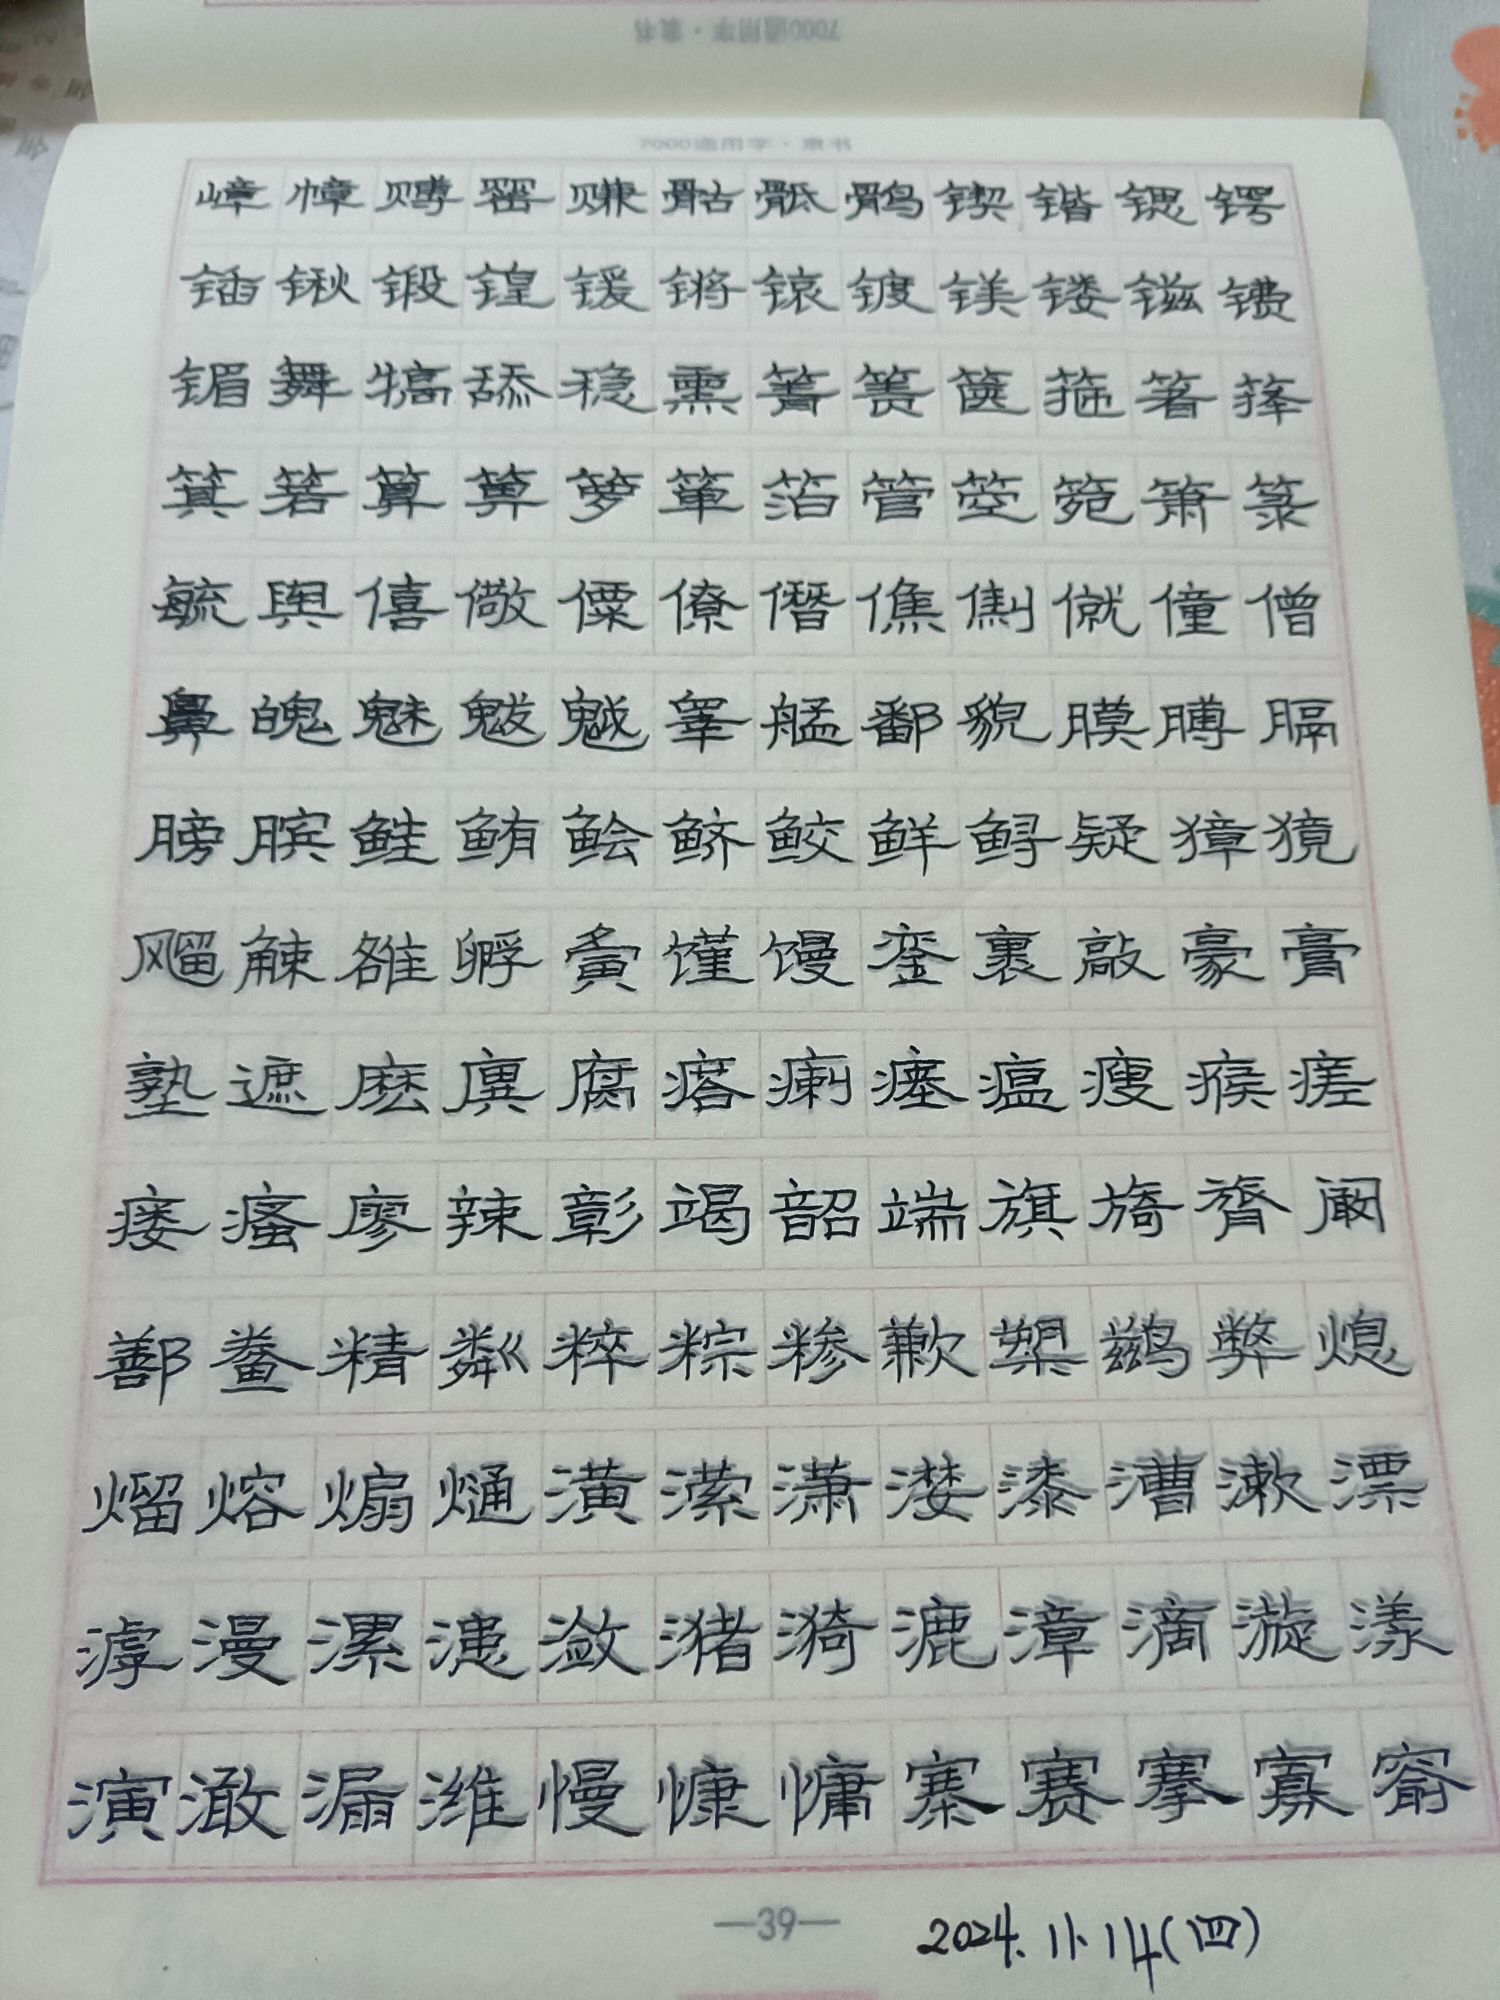 7000通用字·隶书
7000通用字·隶书
嶂 幛 赙 罂 赚 骷 骶 鹘 锲 锴 锶 锷
锸 锹 锻 锽 锾 锵 镓 镀 镁 镂 镃 镄
镅 舞 犒 舔 稳 熏 箐 箦 箧 箍 箸 箨
箕 箬 算 箅 箩 箪 箔 管 箜 箢 箫 箓
毓 舆 僖 儆 僳 僚 僭 僬 僦 僮 僧
鼻 魄 魅 魃 魆 睾 艋 鄱 貌 膜 膊 膈
膀 膑 鲑 鲔 鲙 鲚 鲛 鲜 鲟 疑 獐 獍
飗 觫 雒 孵 夤 馑 馒 銮 裹 敲 豪 膏
塾 遮 麽 廙 腐 瘩 瘌 瘗 瘟 瘦 瘊 瘥
瘘 瘙 廖 辣 彰 竭 韶 端 旗 旖 膂 阚
鄯 鲞 精 粼 粹 粽 糁 歉 槊 鹚 弊 熄
熘 熔 煽 熥 潢 潆 潇 漤 漆 漕 漱 漂
滹 漫 漯 漶 潋 潴 漪 漉 漳 滴 漩 漾
演 澉 漏 潍 慢 慷 慵 寨 赛 搴 寡 窬
—39—
2024.11.14(四)